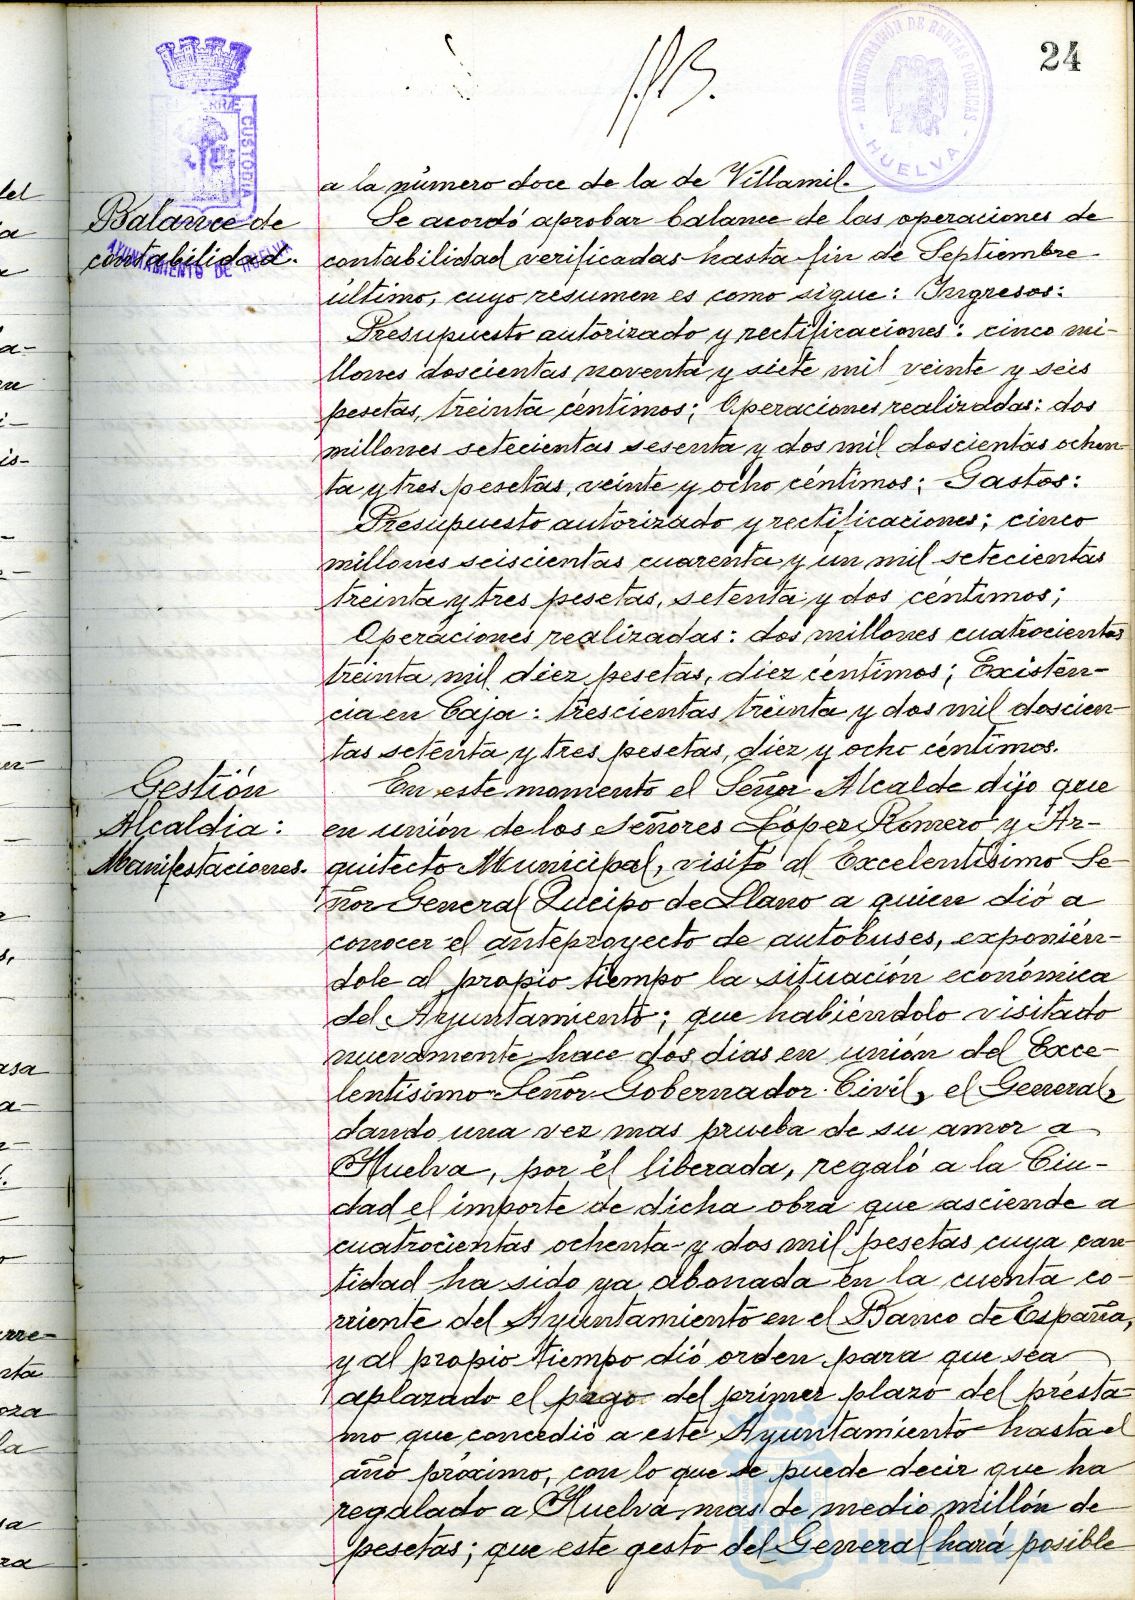 24
ADMINISTRACIÓN DE RENTAS PÚBLICAS
HUELVA
CUSTODIA
AYUNTAMIENTO DE HUELVA
a la número doce de la de Villamil.
Balance de
contabilidad.
Se acordó aprobar balance de las operaciones de
contabilidad verificadas hasta fin de Septiembre
último, cuyo resumen es como sigue: Ingresos:
Presupuesto autorizado y rectificaciones: cinco mi-
llones doscientas noventa y siete mil veinte y seis
pesetas, treinta céntimos; Operaciones realizadas: dos
millones setecientas sesenta y dos mil doscientas ochen-
ta y tres pesetas, veinte y ocho céntimos; Gastos:
Presupuesto autorizado y rectificaciones; cinco
millones seiscientas cuarenta y un mil setecientas
treinta y tres pesetas, setenta y dos céntimos;
Operaciones realizadas: dos millones cuatrocientas
treinta mil diez pesetas, diez céntimos; Existen-
cia en Caja: trescientas treinta y dos mil doscien-
tas setenta y tres pesetas, diez y ocho céntimos.
Gestión
Alcaldia:
Manifestaciones.
En este momento el Señor Alcalde dijo que
en unión de los Señores López Romero y Ar-
quitecto Municipal, visitó al Excelentísimo Se-
ñor General Queipo de Llano a quien dió a
conocer el anteproyecto de autobuses, exponién-
dole al propio tiempo la situación económica
del Ayuntamiento; que habiéndolo visitado
nuevamente hace dos dias en unión del Exce-
lentísimo Señor Gobernador Civil, el General,
dando una vez mas prueba de su amor a
Huelva, por él liberada, regaló a la Ciu-
dad el importe de dicha obra que asciende a
cuatrocientas ochenta y dos mil pesetas cuya can-
tidad ha sido ya abonada en la cuenta co-
rriente del Ayuntamiento en el Banco de España,
y al propio tiempo dió orden para que sea
aplazado el pago del primer plazo del présta-
mo que concedió a este Ayuntamiento hasta el
año próximo, con lo que se puede decir que ha
regalado a Huelva mas de medio millón de
pesetas; que este gesto del General hará posible
HUELVA